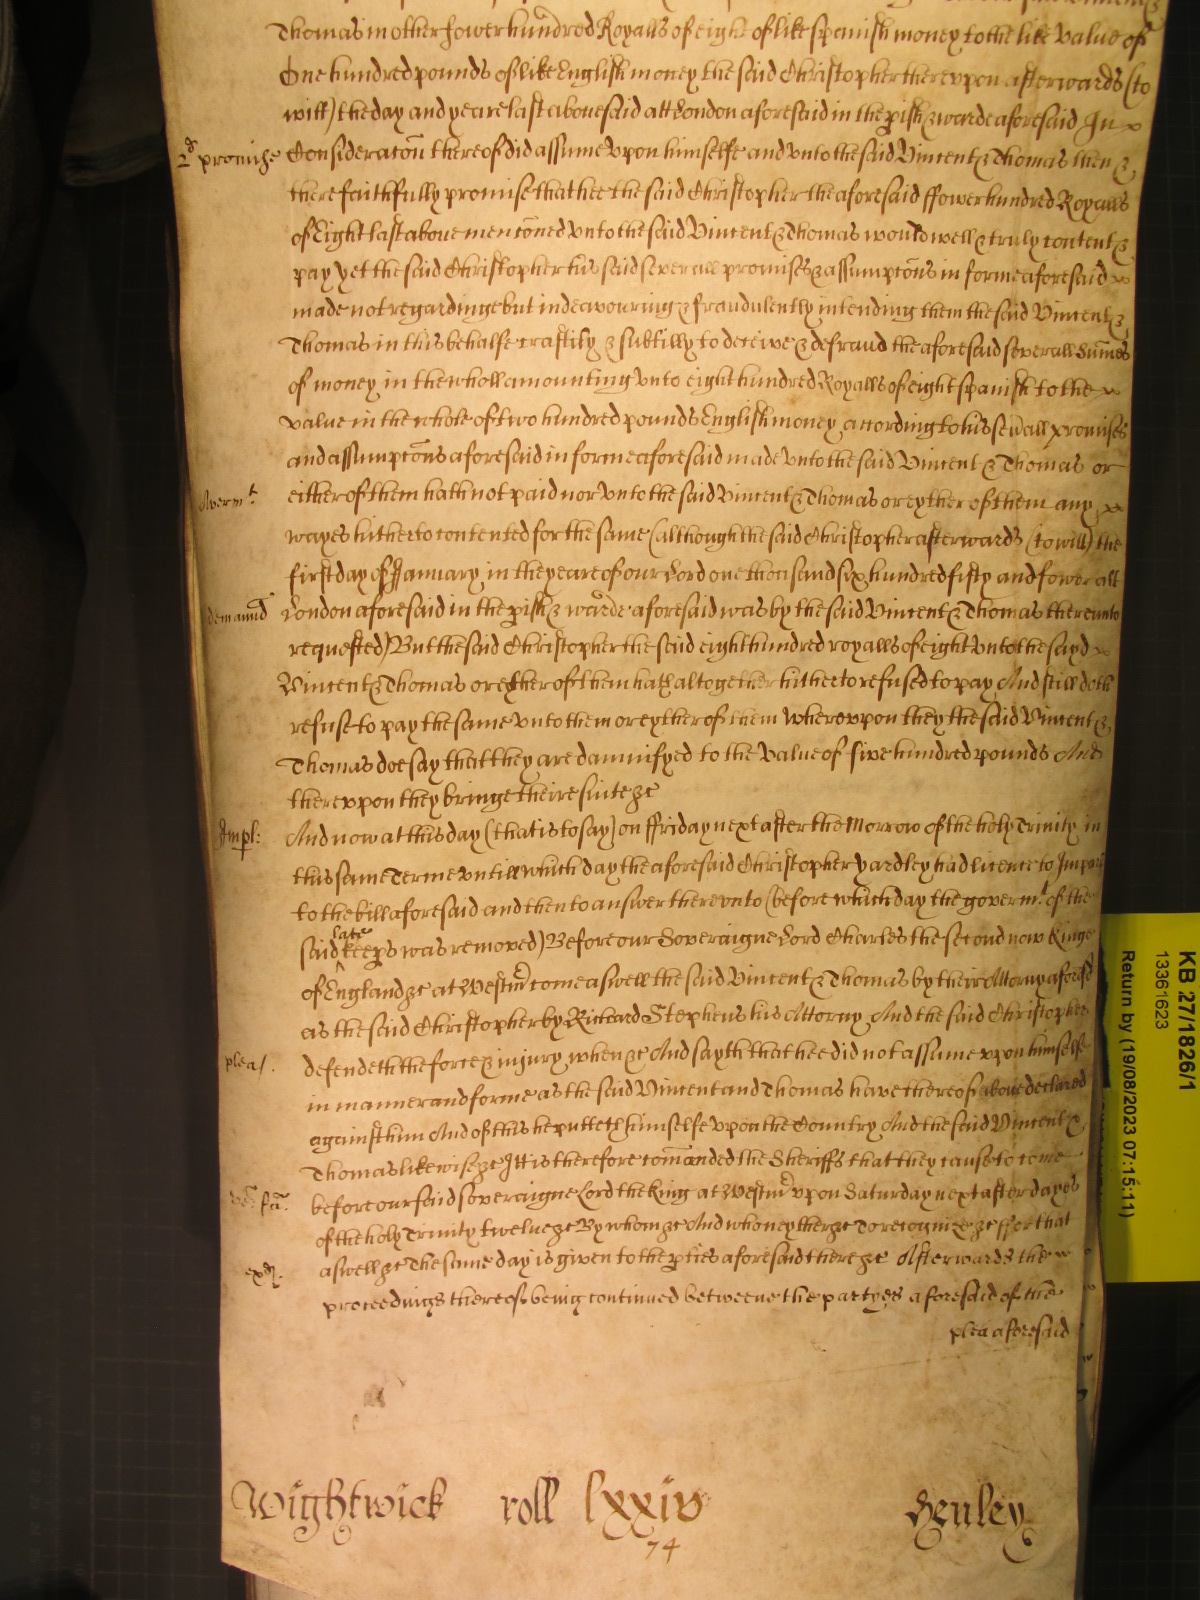 Thomas in other fower hundred Royalls of eight of like spanish money to the like value of
One hundred pounds of like English money the said Christopher therevpon afterwards (to
witt) the day and yeare last abouesaid att London aforesaid in the pish & warde aforesaid In
2d promise Consideracōn thereof did assume vpon himselfe and vnto the said Vincent & Thomas then &
there faithfully promise that hee the said Christopher the aforesaid ffower hundred Royalls
of Eight last aboue mencōned vnto the said Vincent & Thomas would well & truly content &
pay yet the said Christopher his said severall promises & assumptōns in forme aforesaid
made not regardinge but indeavouring & fraudulently intending them the said Vincent &
Thomas in this behalfe craftily & subtilly to deceive & defraud the aforesaid severall Sūmes
of money in the wholl amounting vnto eight hundred Royalls of eight spanish to the
value in the whole of two hundred pounds English money according to his sevall promises
and assumptōns aforesaid in forme aforesaid made vnto the said Vincent & Thomas or
Averm.t either of them hath not paid nor vnto the said Vincent & Thomas or eyther of them any
wayes hitherto contented for the same (although the said Christopher afterwards (to witt) the
first day of January in the yeare of our Lord one thousand six hundred fifty and fower att
demannd London aforesaid in the pish & warde aforesaid was by the said Vincent & Thomas therevnto
requested) But the said Christopher the said eight hundred royalls of eight vnto the sayd
Vincent & Thomas or eyther of them hath altogether hitherto refused to pay And still doth
refuse to pay the same vnto them or eyther of them wherevpon they the said Vincent &
Thomas doe say that they are damnifyed to the value of five hundred pounds And
therevpon they bringe theire suite &c
Impl: And now at this day (that is to say) on ffriday next after the Morrow of the holy Trinity in
this same Terme vntill which day the aforesaid Christopher Yardley had licence to Impar
to the bill aforesaid and then to answer therevnto (before which day the governm.t of the
said late keeps was removed) Before our Soveraigne Lord Charles the second now Kinge
of England &c at Westmr come aswell the said Vincent & Thomas by their Attorny aforesd
as the said Christopher by Richard Stephens his Attorny And the said Christopher
plea/. defendeth the force & injury when &c And sayth that hee did not assume vpon himselfe
in manner and forme as the said Vincent and Thomas have thereof aboue declared
against him And of this he putteth himselfe vpon the Country And the said Vincent &
Thomas likewise &c Itt is therefore comanded the Sheriffs that they cause to come
ve: fa: before our said soveraigne Lord the King at Westmr vpon Saturday next after dayes
of the holy Trinity twelue &c By whom &c And who neyther &c To recognize &c ffor that
aswell &c The same day is given to the pties aforesaid there &c Afterwards the
proceedings thereof being continued betweene the partyes aforesaid of the
plea aforesaid
Wightwick roll lxxiv Henley
74
KB 27/1826/1
13361623
Return by (19/08/2023 07:15:11)